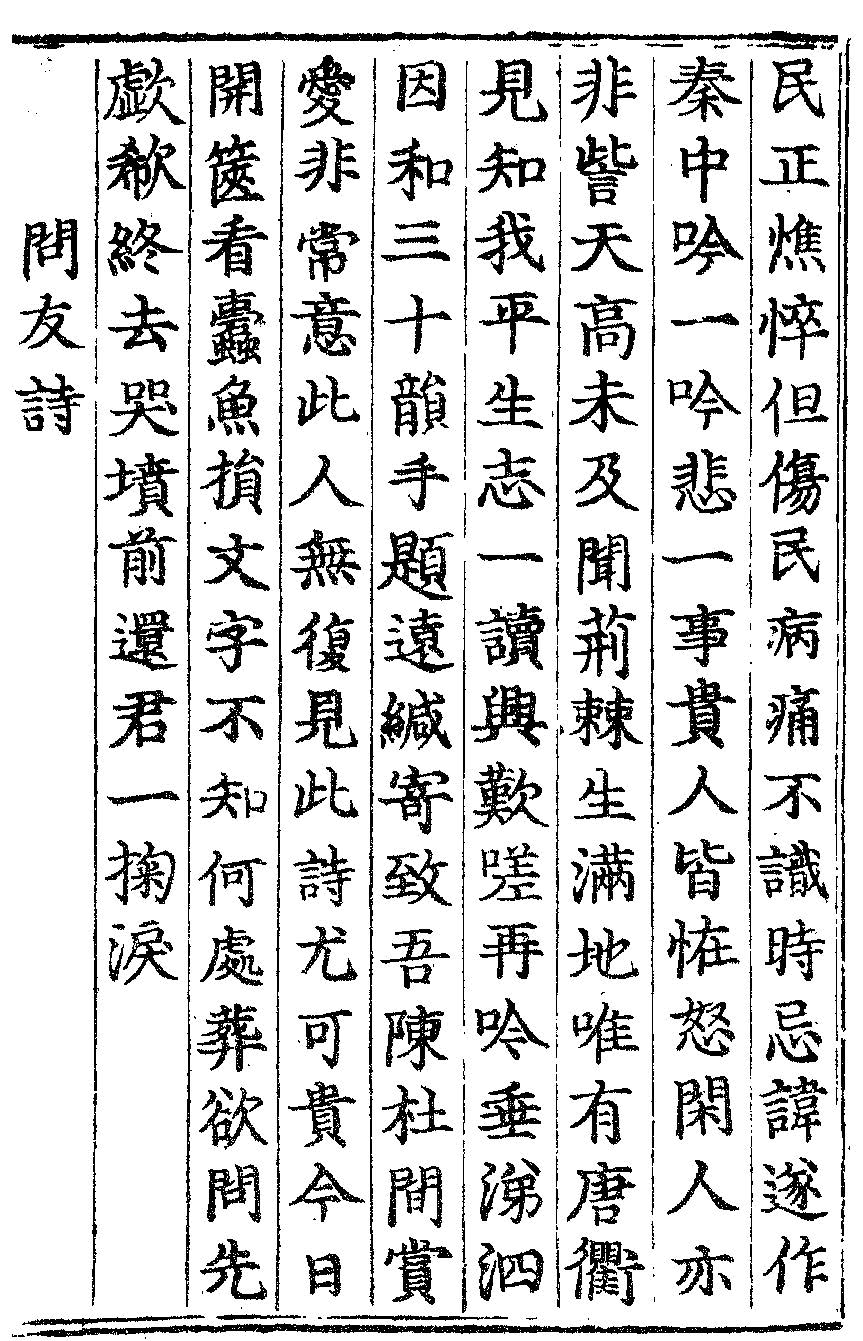 民正憔悴但傷民病痛不識時忌諱遂作
秦中吟一吟悲一事貴人皆恠怒閑人亦
非訾天高未及聞荊棘生滿地唯有唐衢
見知我平生志一讀興歎嗟再吟垂涕泗
因和三十韻手題遠緘寄致吾陳杜間賞
愛非常意此人無復見此詩尤可貴今日
開篋看蠹魚損文字不知何處葬欲問先
歔欷終去哭墳前還君一掬淚
問友詩